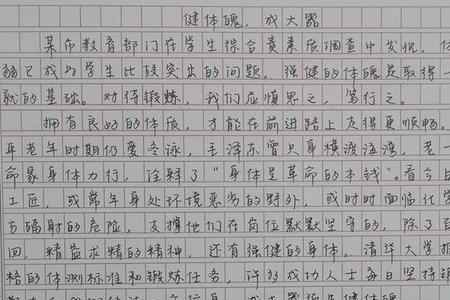 健体魄，成大器
某市教育部门在学生综合素质调查中发现，体
弱已成为学生比较突出的问题。强健的体魄是取得一
就的基础。对待锻炼，我们应慎思之，笃行之。
拥有良好的体质，才能在前进路上走得更顺畅。
年老年时期仍要冬泳，毛泽东曾只身横渡海湾，老一
命家身体力行，诠释了“身体是革命的本钱”。看今日
工匠，或常年身处环境恶劣的野外，或时时面临化学
与辐射的危险，支撑他们在岗位默默坚守的，除了百
回，精益求精的精神，还有强健的身体。清华大学推
格的体测标准和锻炼任务，许多成功人士每日坚持锻